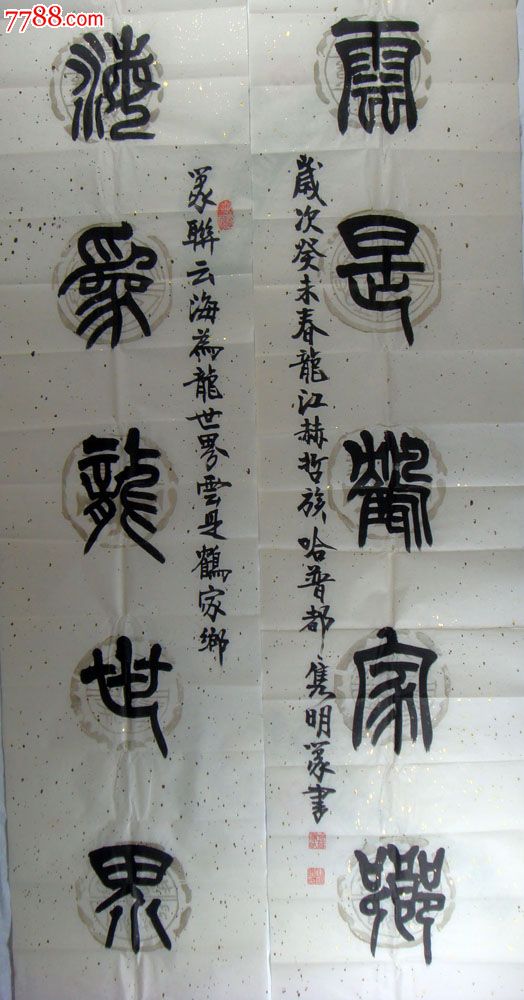 7788.com
海為龍世界
篆聯云海為龍世界雲是鶴家鄉
雲是鶴家鄉
歲次癸未春龍江赫哲族哈普都隽明篆书